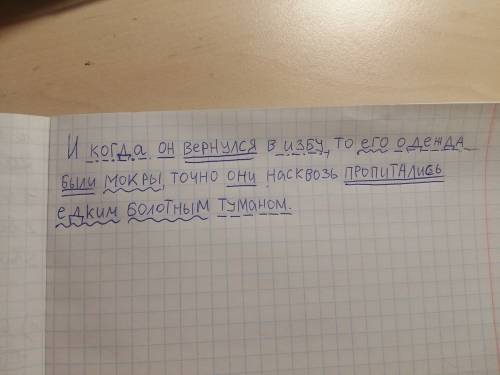 И когда он вернулся в избу, то его одежда
были мокры, точно они насквозь пропитались
едким болотным туманом.